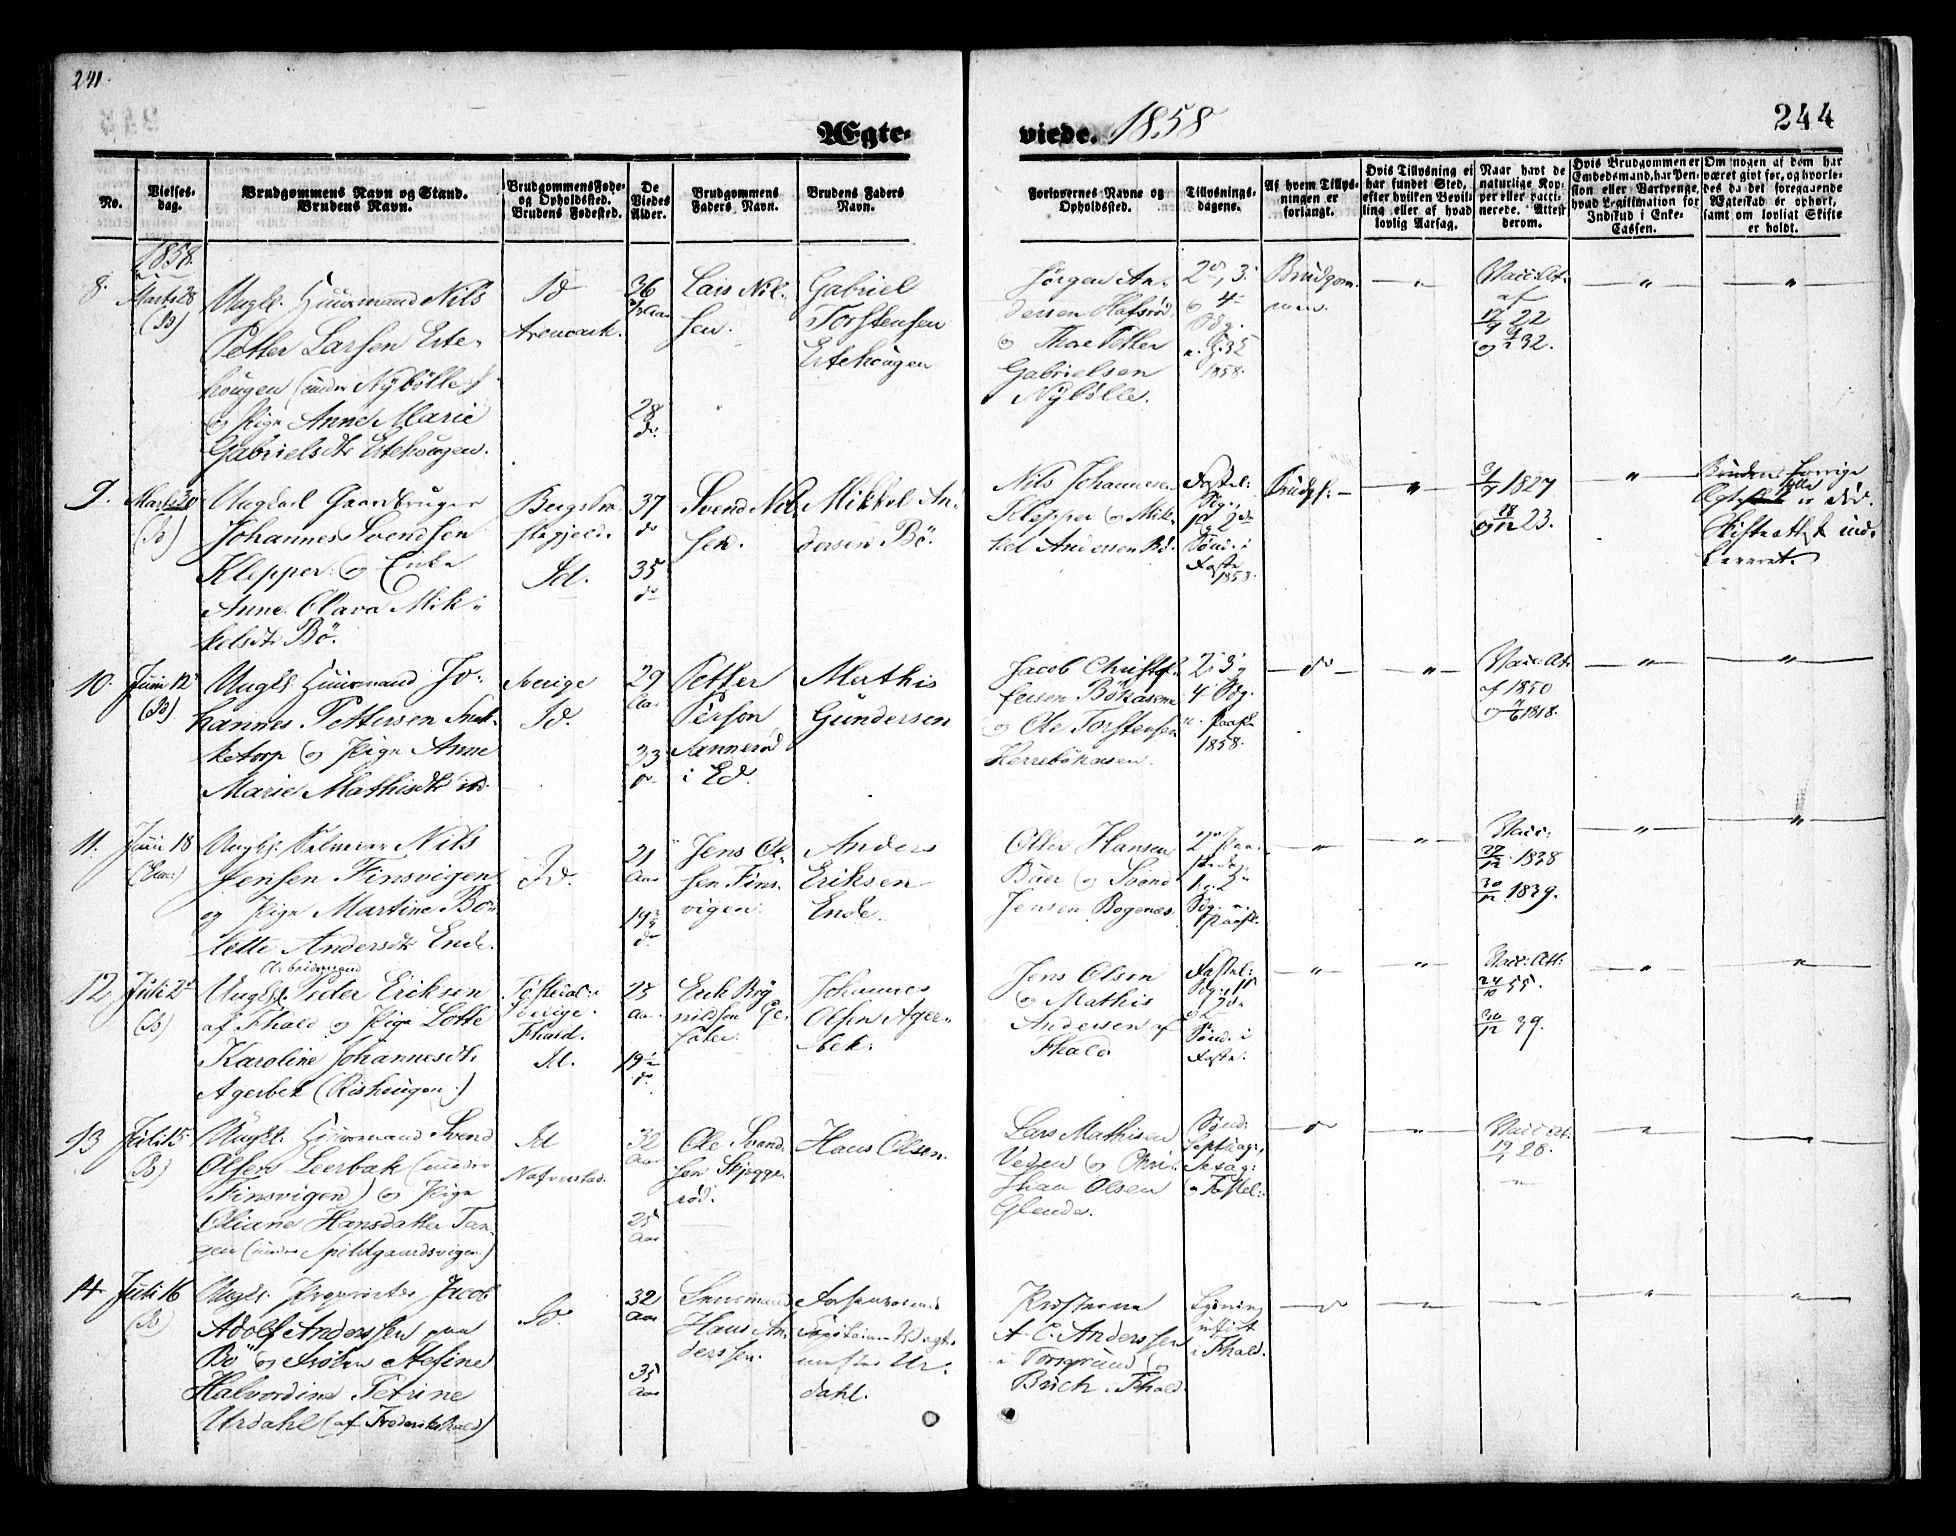 241.
Ægte-
viede. 1858
244
No.
Vielses-
dag.
Brudgommens Navn og Stand.
Brudens Navn.
Brudgommens Føde-
og Opholdsted.
Brudens Fødested.
De
Viedes
Alder.
Brudgommens
Faders Navn.
Brudens Faders
Navn.
Forlovernes Navne og
Opholdsted.
Tillysnings-
dagene.
Af hvem Tillys-
ningen er
forlangt.
Hvis Tillysning ei
har fundet Sted,
efter hvilken Bevil-
ling eller af hvad
lovlig Aarsag.
Naar havt de
naturlige Kop-
per eller vacci-
nerede. Attest
derom.
Hvis Brudgommen er
Embedsmand, har Pen-
sion eller Vartpenge,
hvad Legitimation for
Indskud i Enke-
Cassen.
Om nogen af dem har
været gift før, og hvorle-
des da det foregaaende
Ægteskab er ophørt,
samt om lovligt Skifte
er holdt.
1858.
8.
Marts 28
(Id)
Ungk. Huusmand Nils
Petter Larsen Erte-
hougen (under Nybølle)
og Pige Anne Marie
Gabrielsdtr Ertehougen.
Id
Aremark.
36
28
do
Lars Nil-
sen.
Gabriel
Torstensen
Ertehougen
Jørgen An-
dersen Hafsrød
og Thor Petter
Gabrielsen
Nybølle.
2den, 3.
og 4
Sdg.
1858.
Brudgom-
men.
"
Vacc: At:
af
17/9 22
og 32.
"
"
9.
Marts 30
(Id)
Ungkarl Gaardbruger
Johannes Svendsen
Klepper og Enke
Anne Olava Mik-
kelsdtr Bö.
Id.
37
do
35
do
Svend Nil-
sen.
Mikkel An-
dersen Bö.
Nils Johannesen
Klepper og Mik-
kel Andersen Bö.
Fastel:
Sdg.,
1ste og 2den
Sønd. i
Faste
1858.
Brudgk: -
"
3/7 1827
og 18/12 23.
"
Brudens forrige
Ægtefelle er død.
Skifteattest ind-
leveret.
10.
Juni 12
(Id)
Ungk. Huusmand Jo-
hannes Pettersen
ketorp og Pige Anne
Marie Mathisdtr
Sverige
Id.
29
Aar
23
do
Petter
Person
Sannerød
i Ed.
Mathis
Gundersen
Jacob Christof-
fersen Bökasene
og Ole Torstensen
Herrebökasen.
2, 3 og
4 Sdg.
e. Paaske
1858.
do
"
Vacc: At.
af 1850
og 1818.
"
"
11.
Juni 18
Ungk. Nils
Jensen Finsvigen
og Pige Martine Bo-
lette Andersdtr Ende.
Id.
21
Aar
19
do
Jens Ol-
sen Fins-
vigen.
Anders
Eriksen
Ende.
Otter Hansen
Buer og Svend
Jensen Bogenæs.
2den Paa-
skedag,
1 og 2
Sdg. e.
Paaske.
"
"
Vacc:
27/12 1838
30/12 1839.
"
"
12
Juli 2
(Id)
Arbeidsmand
Ungk. Peter Eriksen
af Fhald og Pige Lotte
Karoline Johannesdtr.
Agerbek (Rishougen.)
Sverige.
Fhald.
Id.
25
Aar
19 1/2
do
Erik Bry
nildsen
Johannes
Olsen Ager-
bek.
Jens Olsen
og Mathis
Andersen af
Fhald
Fastel:
Sdg., 1ste
og 2
Sønd. i
Faste.
"
"
Vacc: Att:
24/10 55.
30/12 39.
"
"
13
Juli 15
(Id)
Ungk. Huusmand Svend
Olsen Leerbak (under
Finsvigen) og Pige
Oliane Hansdatter Tan-
gen (under Spildgaardsvigen)
Id
Nafverstad.
32
Aar
25
Aar
Ole Svend-
sen Skjegge-
rød.
Hans Olsen.
Lars Mathisen
Veden og Chri-
stian Olsen
Glende.
Sønd:
Septuag:,
Sexag:
og Fastel:.
do
"
Vacc At.
19/1 26.
"
"
"
14
Juli 16
(Id)
Ungk. Proprietær Jacob
Adolf Anderssen paa
Bö og Frøken Stefine
Halvordine Petrine
Urdahl (af Frederikshald)
Id
32
Aar
35
Aar
Hans An-
derssen.
Vagt-
mester Ur-
dahl.
A. C. Anderssen
i Torsgrund og
Buch i Fhald.
Lysning
udført
i Fhald.
"
"
"
"